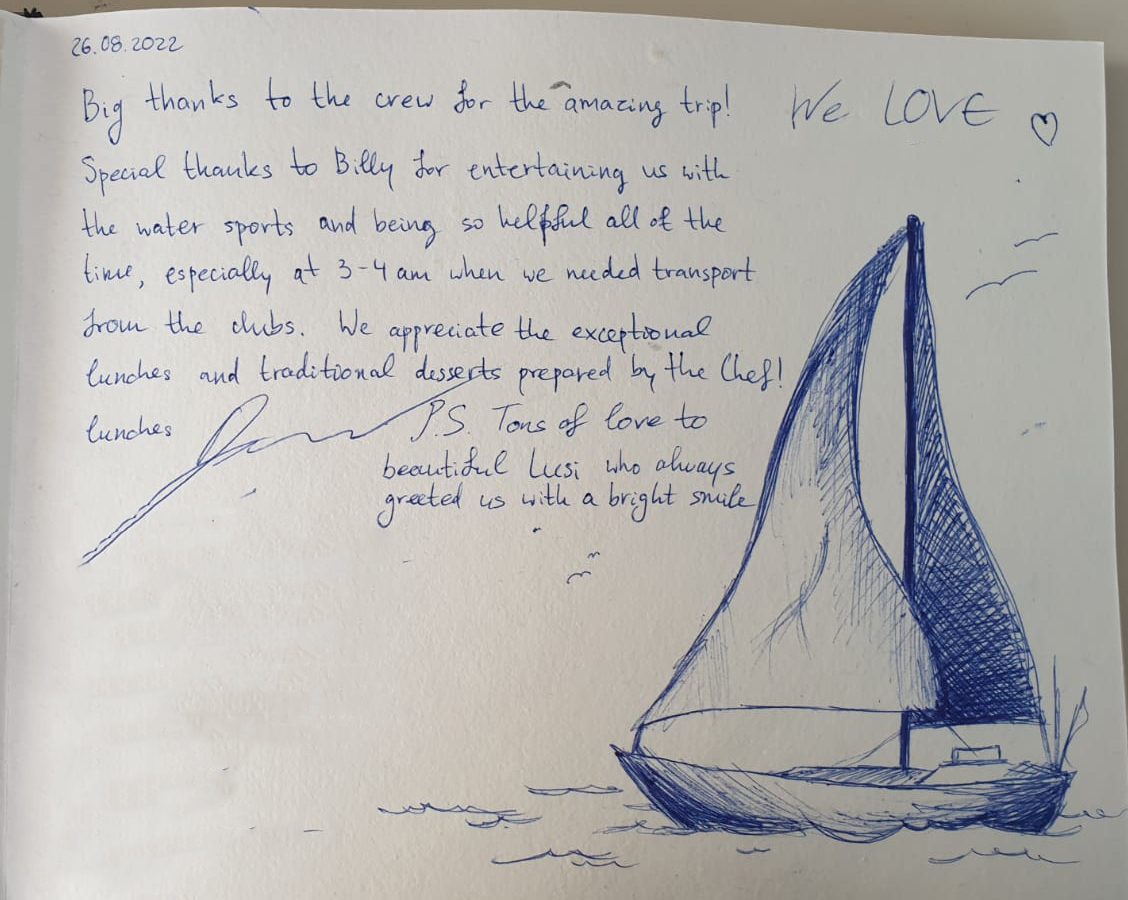 26.08.2022
Big thanks to the crew for the amazing trip!
We LOVE ♡
Special thanks to Billy for entertaining us with
the water sports and being so helpful all of the
time, especially at 3-4 am when we needed transport
from the clubs. We appreciate the exceptional
lunches and traditional desserts prepared by the Chef!
lunches
P.S. Tons of love to
beautiful Lusi who always
greeted us with a bright smile